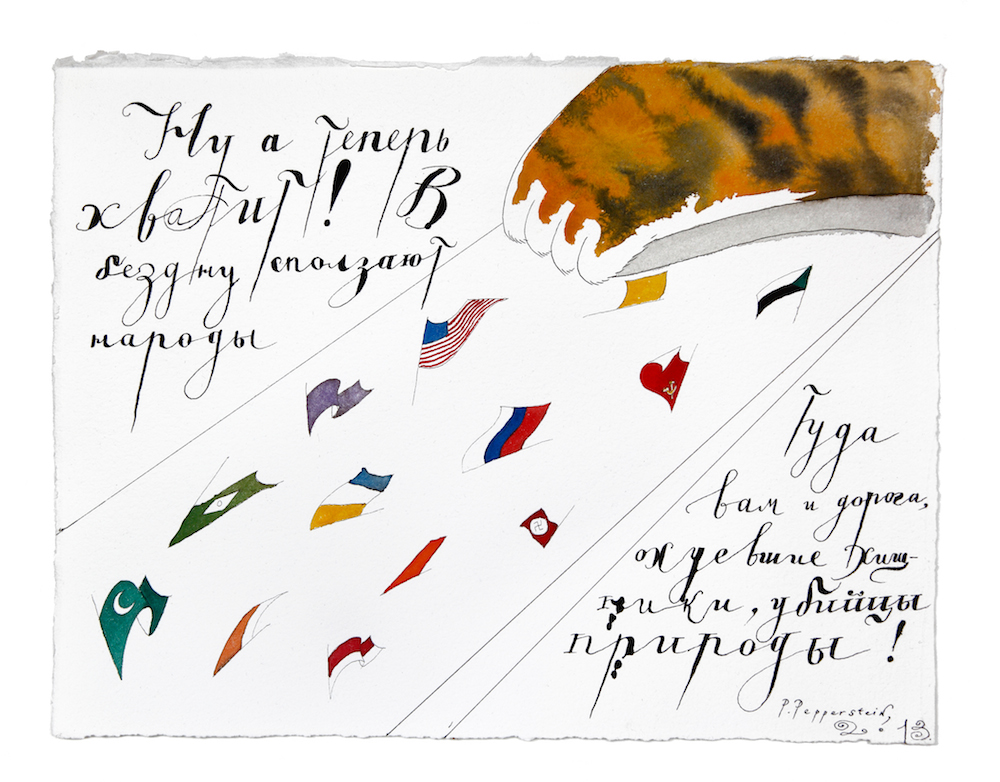 Ну а теперь
хватит! В
бездну сползают
народы
Туда
вам и дорога,
охуевшие хищ-
ники, убийцы
природы!
P. Pepperstein,
2013.